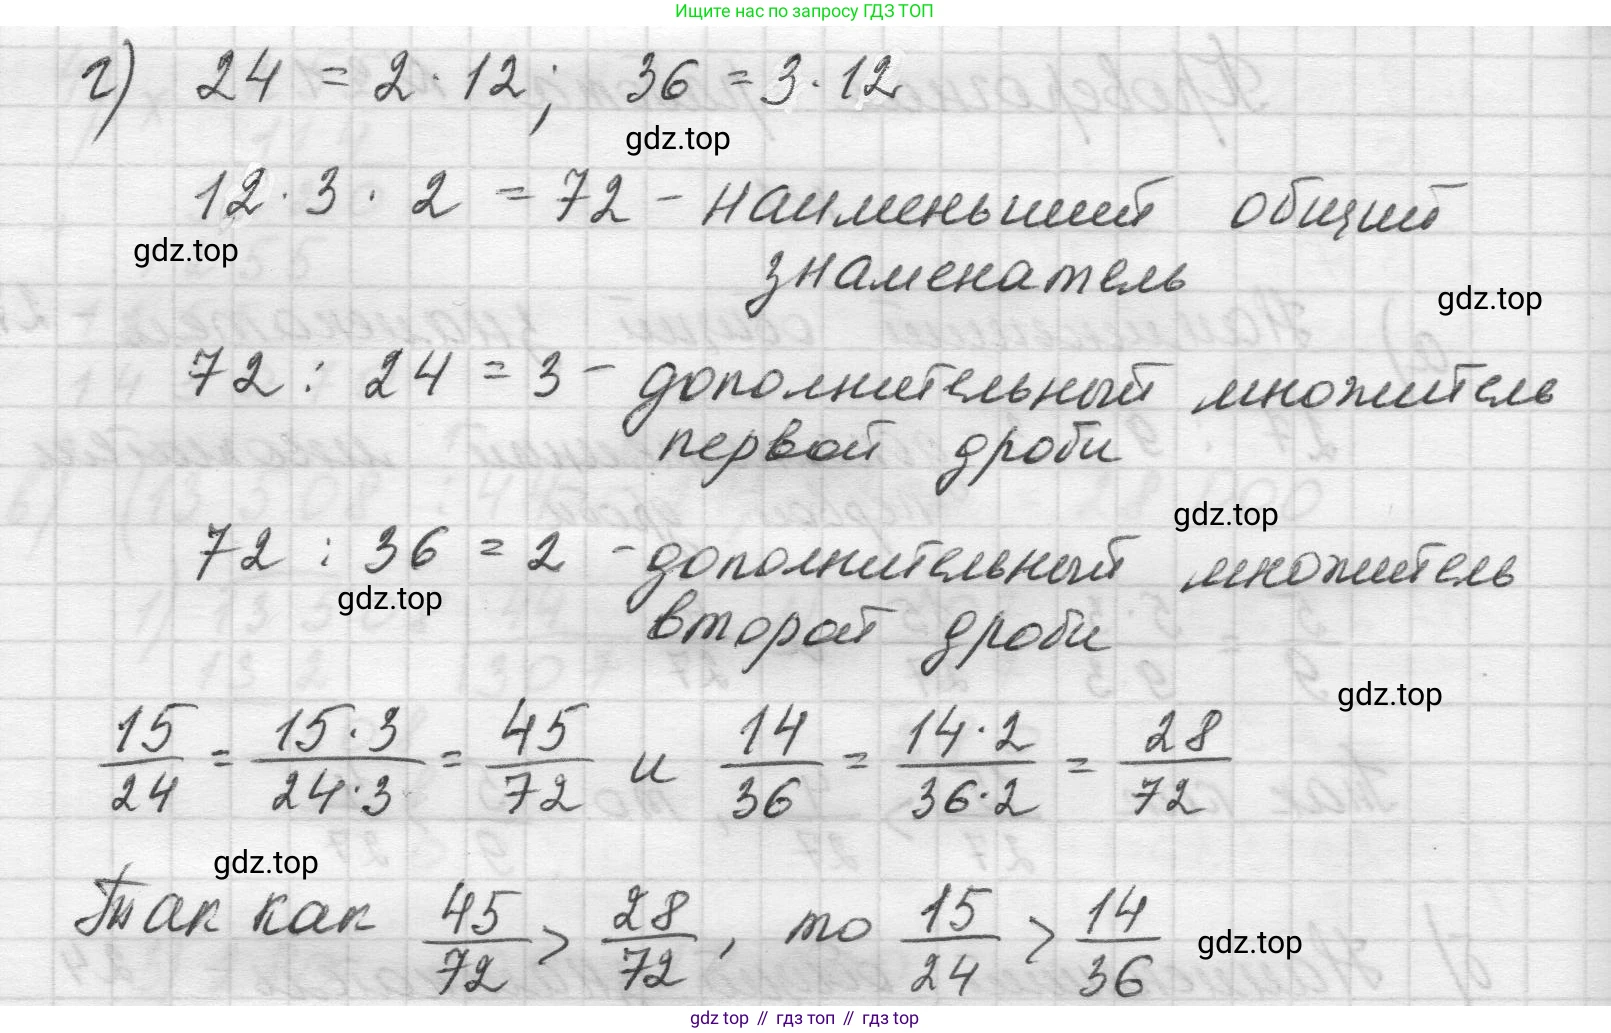 Ищите нас по запросу ГДЗ ТОП
г) 24 = 2 · 12; 36 = 3 · 12
gdz.top
12 · 3 · 2 = 72 - наименьший общий
gdz.top
знаменатель
gdz.top
72 : 24 = 3 - дополнительный множитель
первой дроби
gdz.top
72 : 36 = 2 - дополнительный множитель
gdz.top
второй дроби
gdz.top
15/24 = 15·3/24·3 = 45/72 и 14/36 = 14·2/36·2 = 28/72
gdz.top
Так как 45/72 > 28/72, то 15/24 > 14/36
gdz.top
gdz top // гдз топ // гдз top